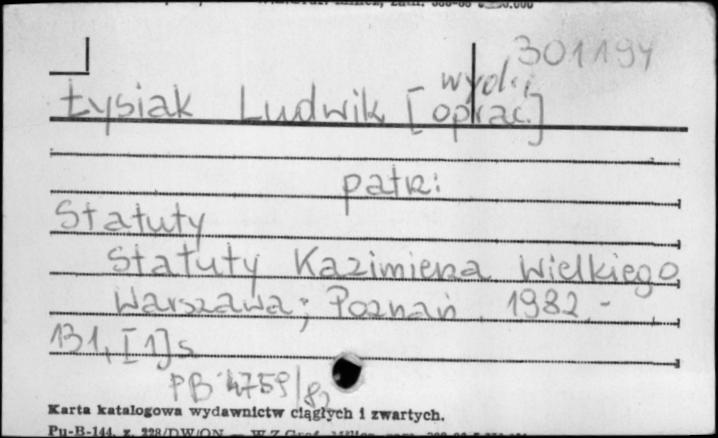 301194
wyd.,
Łysiak Ludwik [oprac.]
patrz:
Statuty
Statuty Kazimierza Wielkiego
Warszawa; Poznań, 1982.-
131, [1] s
PB 4759/82
Karta katalogowa wydawnictw ciągłych i zwartych.
Pu-B-144, z. 228/DW/ON — W.Z.Graf.